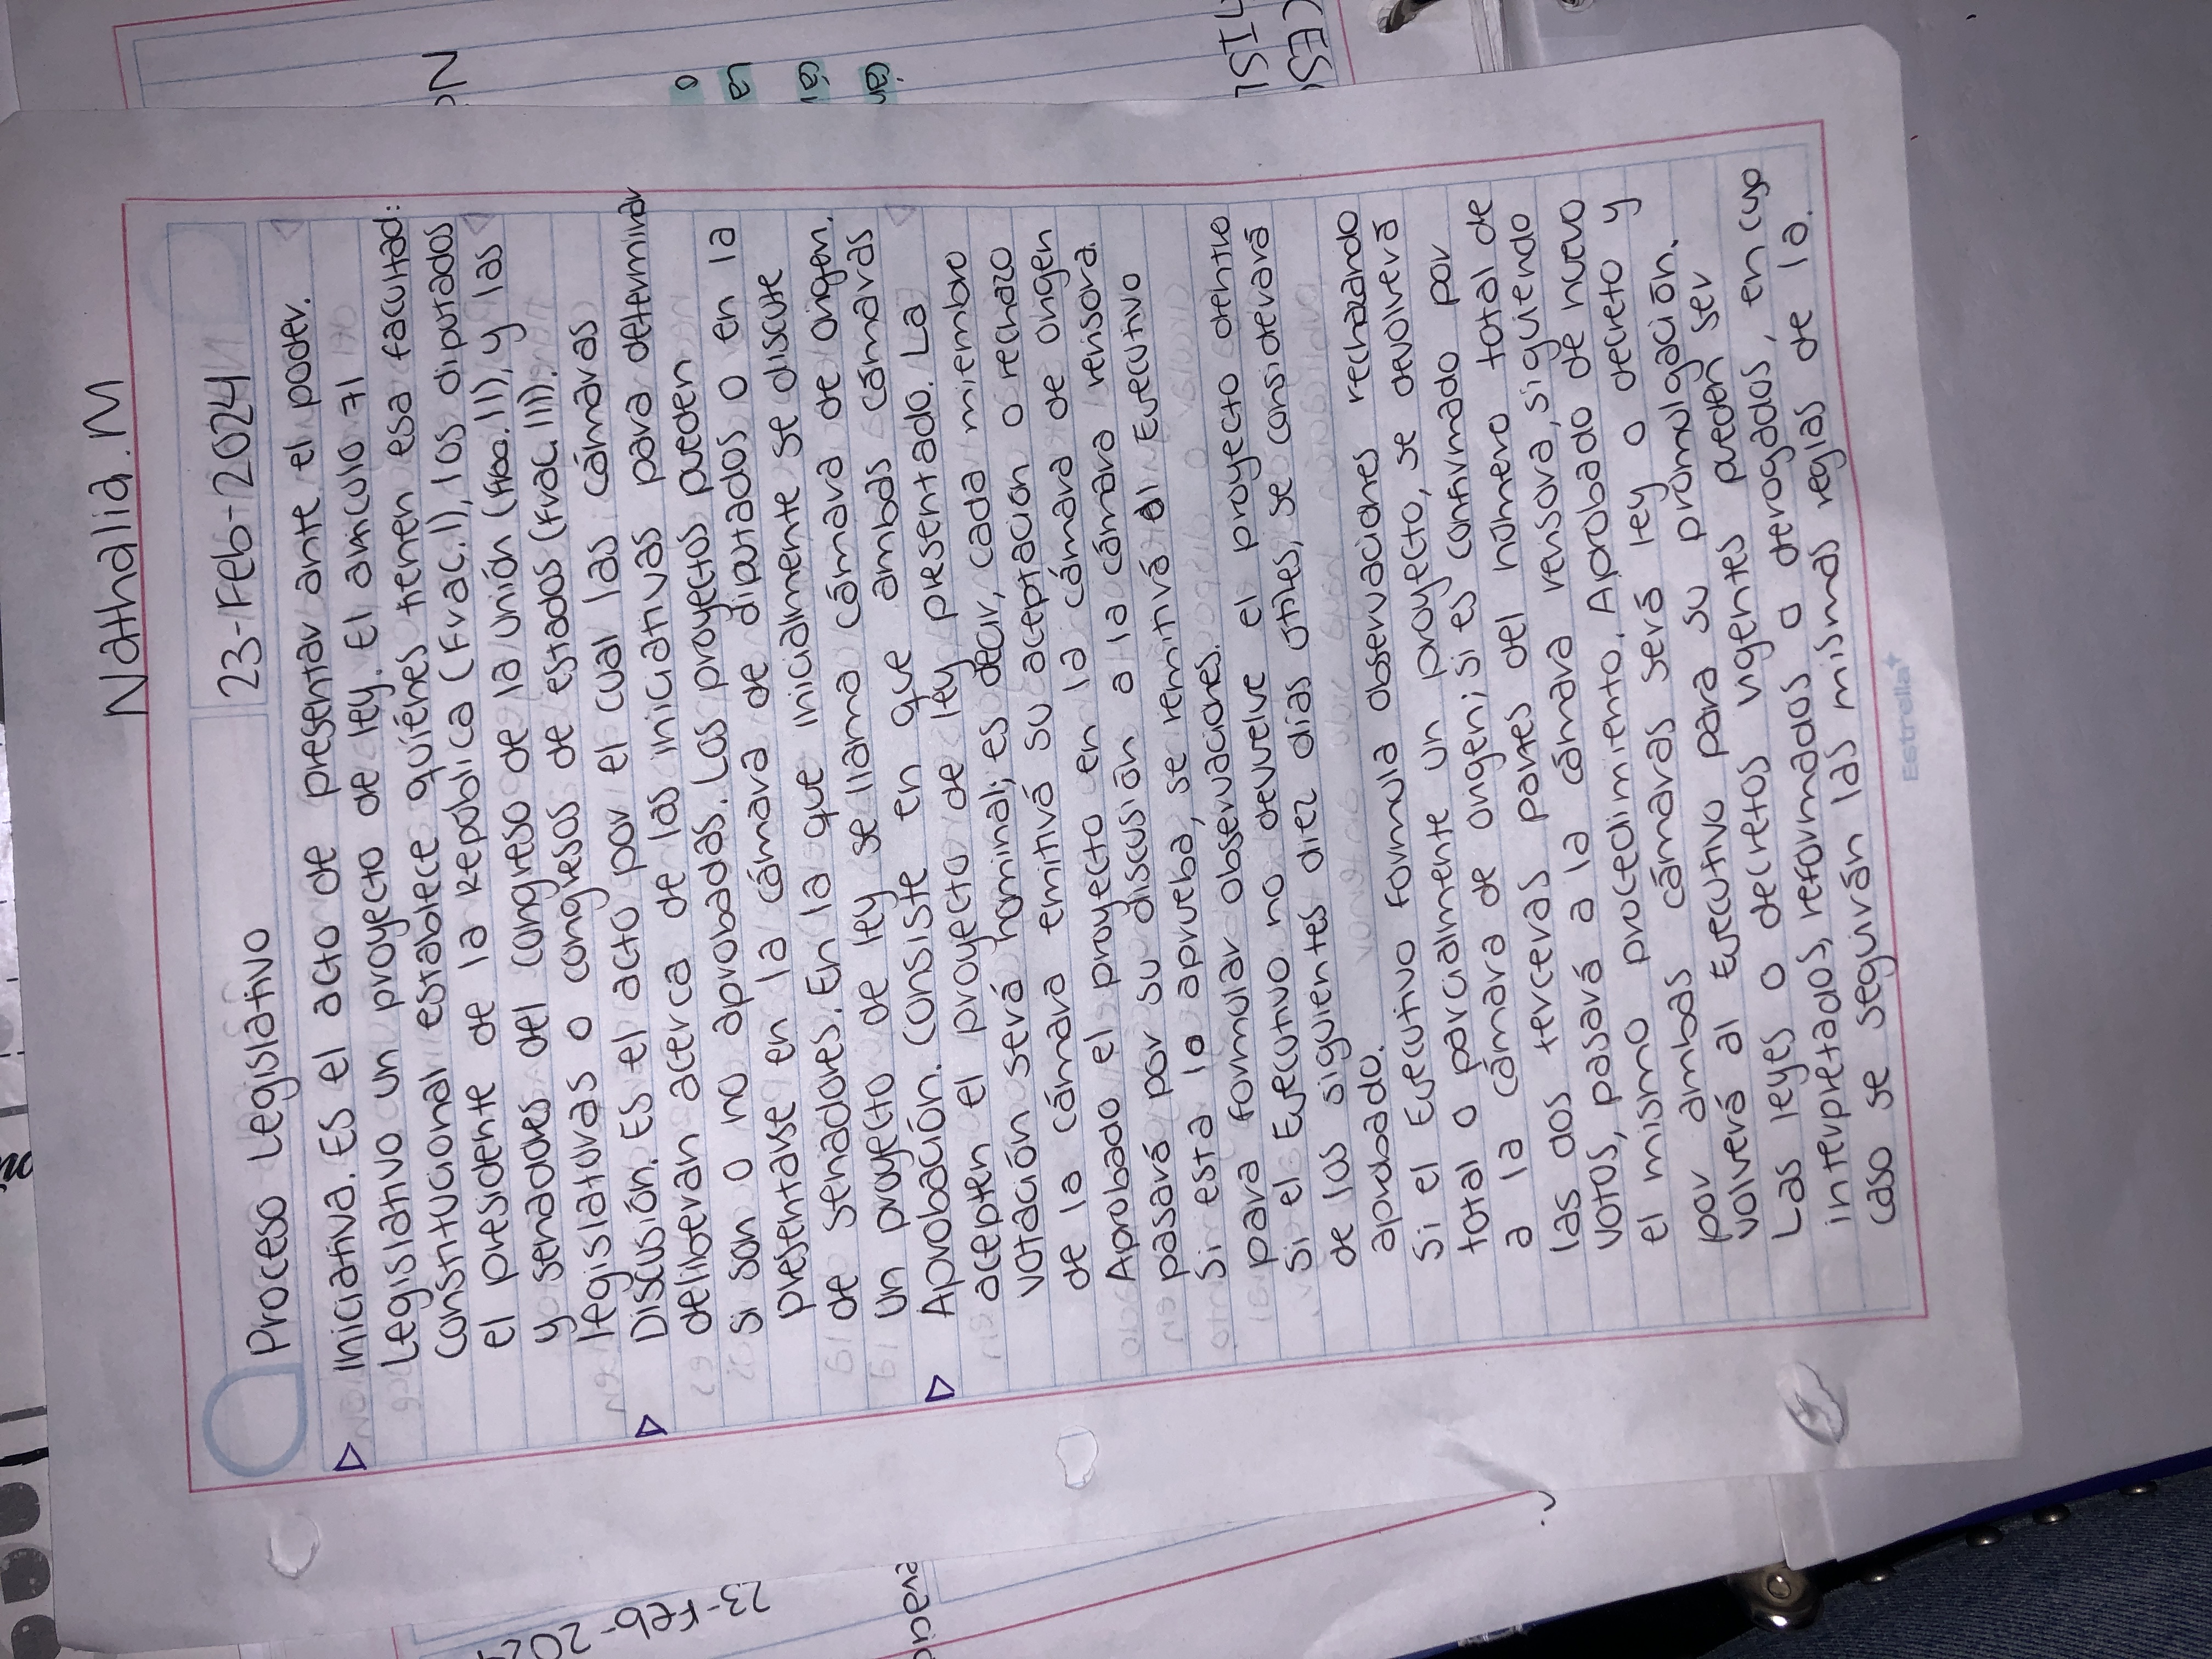 Nathalia.M
Proceso Legislativo
23-Feb-2024
Iniciativa. Es el acto de presentar ante el poder.
Legislativo un proyecto de ley. El artículo 71
constitucional establece quiénes tienen esa facultad:
el presidente de la República (Frac.I), los diputados
y senadores del congreso de la unión (Frac.II), y las
legislaturas o congresos de estados (Frac III).
Discusión. Es el acto por el cual las cámaras
deliberan acerca de las iniciativas para determinar
si son o no aprobadas. Los proyectos pueden
presentarse en la cámara de diputados o en la
de senadores. En la que inicialmente se discute
un proyecto de ley se llama cámara de origen.
Aprobación. Consiste en que ambas cámaras
acepten el proyecto de ley presentado. La
votación será nominal; es decir, cada miembro
de la cámara emitirá su aceptación o rechazo
Aprobado el proyecto en la cámara de origen
pasará por su discusión a la cámara revisora.
Si esta lo aprueba, se remitirá al Ejecutivo
para formular observaciones.
Si el Ejecutivo no devuelve el proyecto dentro
de los siguientes diez días útiles, se considerará
aprobado.
Si el Ejecutivo formula observaciones rechazando
total o parcialmente un proyecto, se devolverá
a la cámara de origen; si es confirmado por
las dos terceras partes del número total de
votos, pasará a la cámara revisora, siguiendo
el mismo procedimiento. Aprobado de nuevo
por ambas cámaras será ley o decreto y
volverá al Ejecutivo para su promulgación.
Las leyes o decretos vigentes pueden ser
interpretados, reformados o derogados, en cuyo
caso se seguirán las mismas reglas de la.
Estrella
23-Feb-202